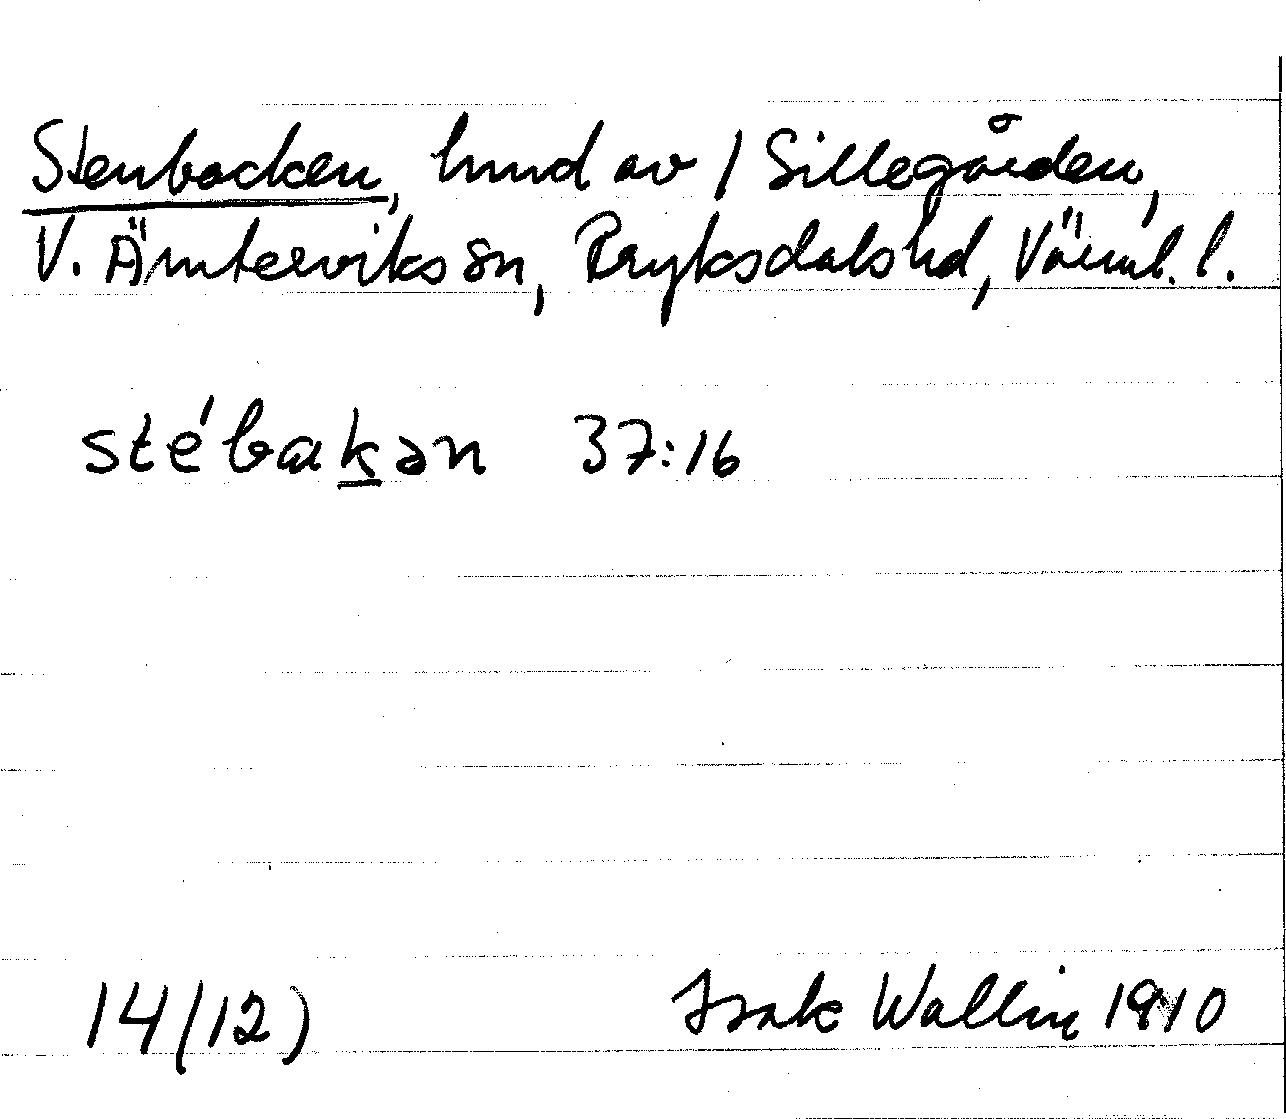 Stenbacken, hmd av 1 Sillegården,
V. Ämterviks sn, Fryksdals hd, Värml. l.
stébak̲ən 37:16
14(12) Isak Wallin 1910